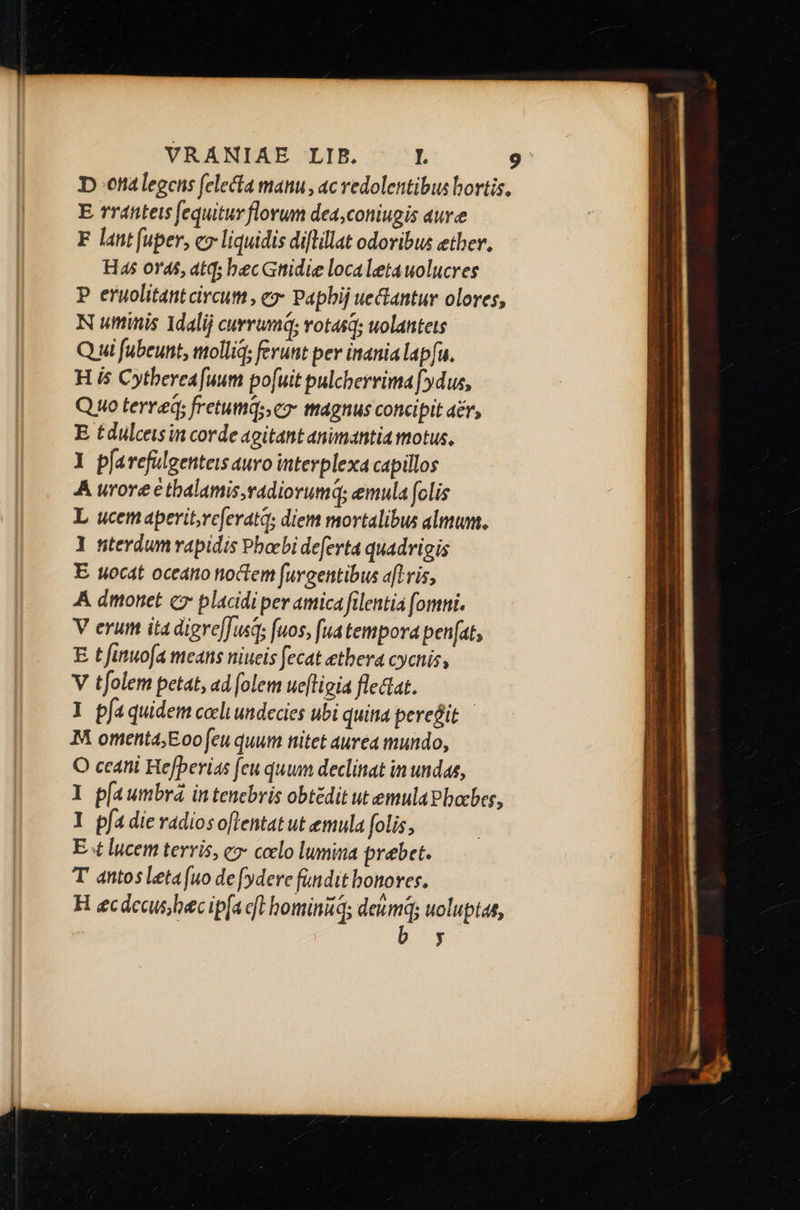 VRANIAE LIB. I. 9
D ona legens ſelecta manu, ac redolentibus hortis.
E rranteis ſequitur florum dea, coniugis auræ
F lant ſuper, & liquidis diſtillat odoribus æther.
Has oras, atq; hæc Gnidiæ loca læta uolucres
P eruolitant circum, & Paphij uectantur olores,
N uminis Idalij currumq́; rotasq́; uolanteis
Q ui ſubeunt, molliq́; ferunt per inania lapſu.
H is Cytherea ſuum poſuit pulcherrima ſydus,
Q uo terræq́; fretumq́;, & magnus concipit aër,
E t dulceis in corde agitant animantia motus.
I pſa refulgenteis auro interplexa capillos
A uroræ è thalamis, radiorumq́; æmula ſolis
L ucem aperit, reſeratq́; diem mortalibus almum.
I nterdum rapidis Phœbi deſerta quadrigis
E uocat oceano noctem ſurgentibus aſtris,
A dmonet & placidi per amica ſilentia ſomni.
V erum ita digreſſusq́; ſuos, ſua tempora penſat,
E t ſinuoſa means niueis ſecat æthera cycnis,
V t ſolem petat, ad ſolem ueſtigia flectat.
I pſa quidem cœli undecies ubi quina peregit
M omenta, Eoo ſeu quum nitet aurea mundo,
O ceani Heſperias ſeu quum declinat in undas,
I pſa umbrā in tenebris obtēdit ut æmula Phœbes,
I pſa die radios oſtentat ut æmula ſolis,
E t lucem terris, & cœlo lumina præbet.
T antos læta ſuo de ſydere fundit honores.
H æc decus, hæc ipſa eſt hominūq́; deûmq́; uoluptas,
b y